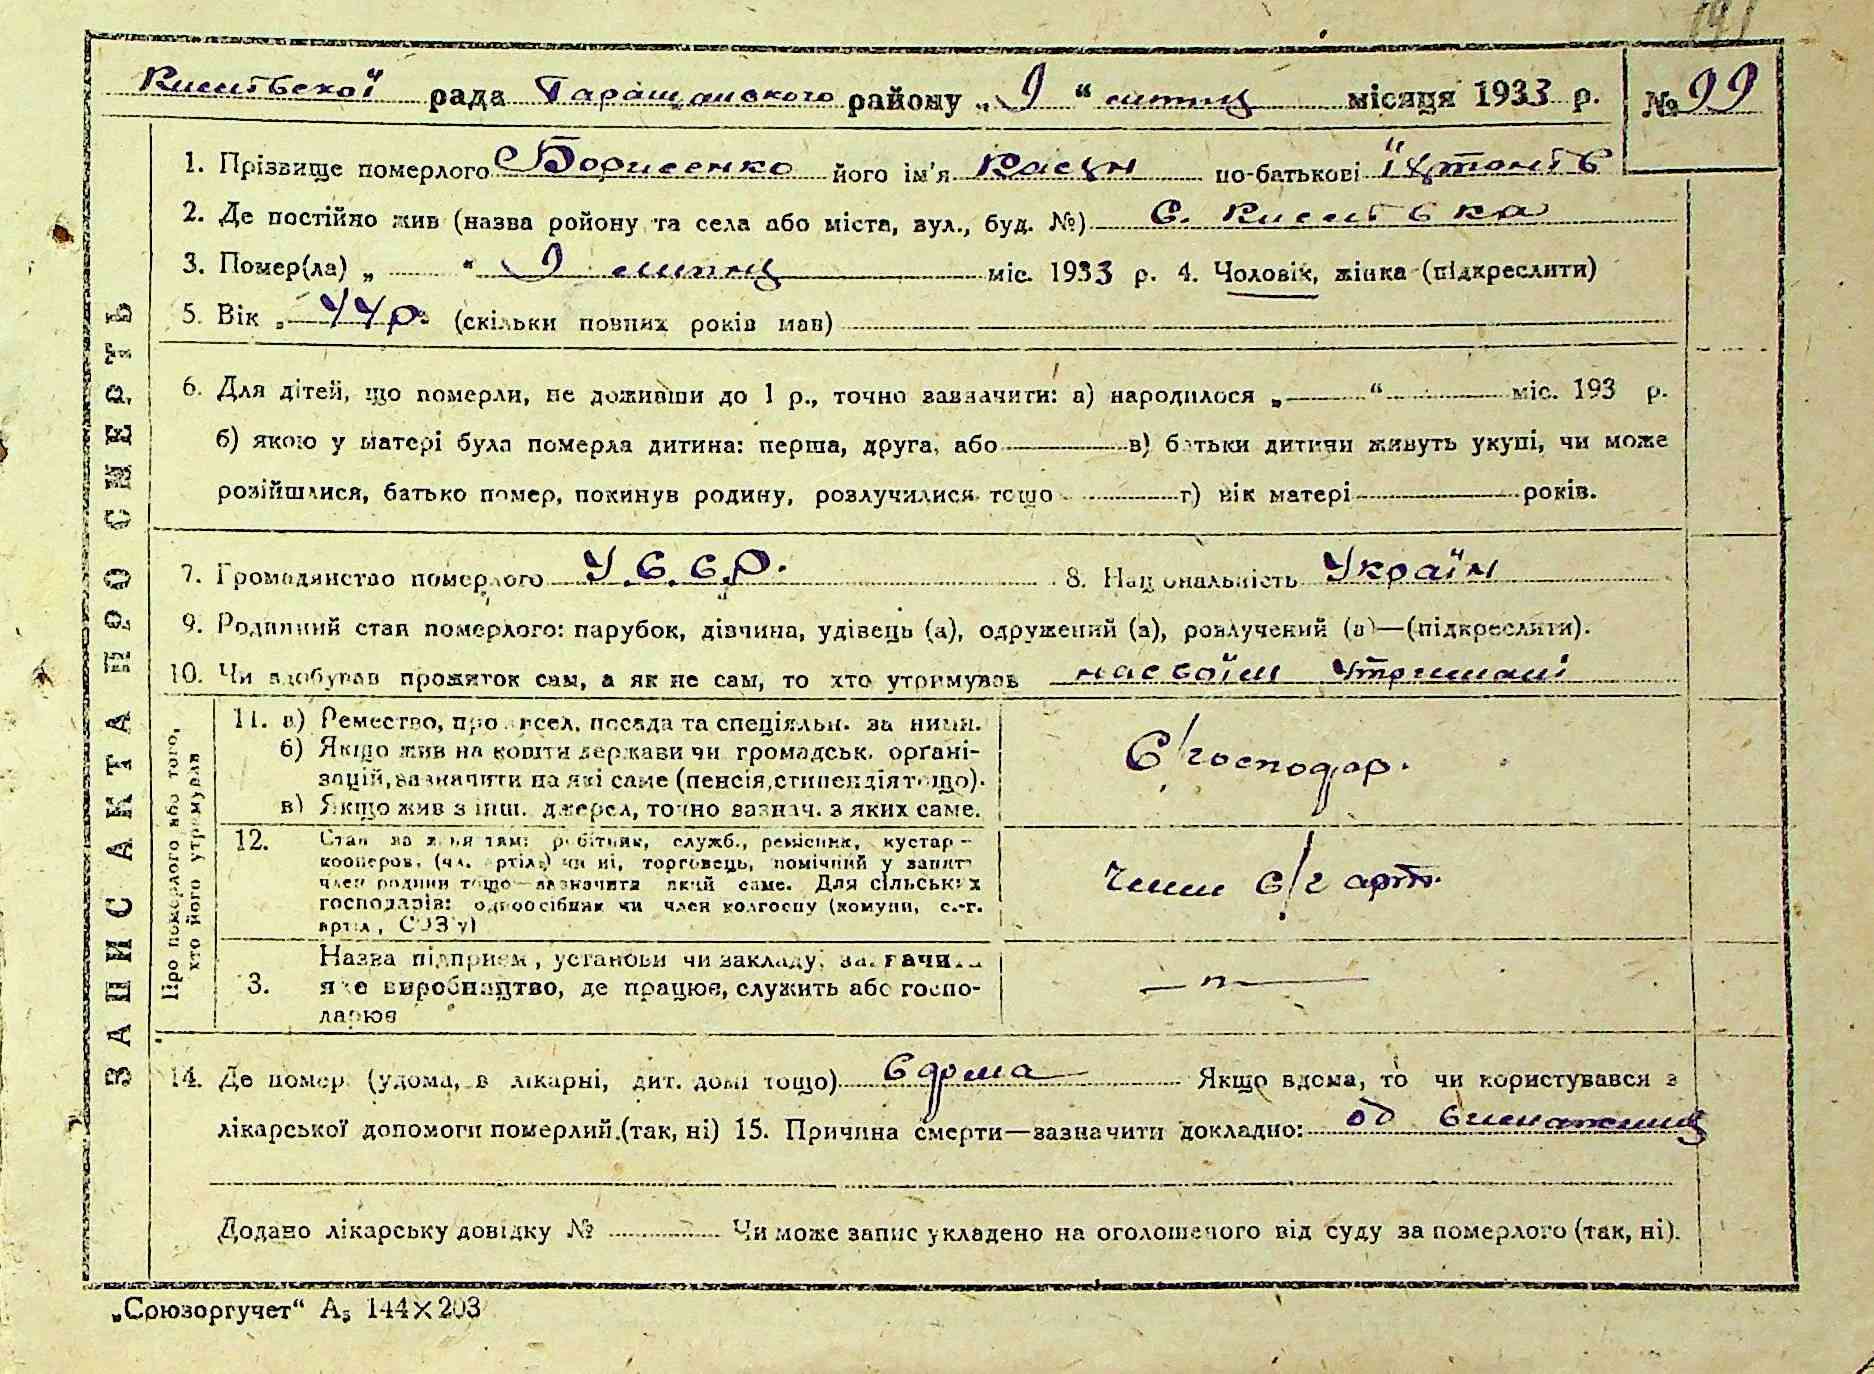 191
рада Таращанського району „ 9 “ липня місяця 1933 р. № 99
1. Прізвище померлого Борисенко його ім'я Касян по-батькові
2. Де постійно жив (назва ройону та села або міста, вул., буд. №) С.
3. Помер(ла) „ “ 9 липня міс. 1933 р. 4. Чоловік, жінка (підкреслити)
5. Вік „ 44 р. (скільки повних років мав)
6. Для дітей, що померли, не доживши до 1 р., точно зазначити: а) народилося „ “ міс. 193 р.
б) якою у матері була померла дитина: перша, друга, або в) батьки дитини живуть укупі, чи може
розійшлися, батько помер, покинув родину, розлучилися тощо г) вік матері років.
7. Громадянство померлого У.С.С.Р. 8. Національність Україн
9. Родинний стан померлого: парубок, дівчина, удівець (а), одружений (а), розлучений (а)—(підкреслити).
10. Чи здобував прожиток сам, а як не сам, то хто утримував на своїм утримані
ЗАПИС АКТА ПРО СМЕРТЬ
Про померлого або того,
хто його утримував
11. а) Ремество, професл, посада та спеціяльн. за ними.
б) Якщо жив на кошти держави чи громадськ. органі-
зацій, зазначити на які саме (пенсія, стипендія тощо).
в) Якщо жив з інш. джерел, точно зазнач. з яких саме.
С/господар.
12. Стан за заняттям: робітник, служб., ремісник, кустар —
кооперов. (чл. артілі) чи ні, торговець, помічний у занят.
член родини тощо—зазначити який саме. Для сільських
господарів: одноосібник чи член колгоспу (комуни, с.-г.
артіл, СОЗ'у)
Член с/г арт.
3. Назва підприєм, установи чи закладу, зазначити
яке виробництво, де працює, служить або госпо-
дарює
— п —
14. Де помер (удома, в лікарні, дит. домі тощо) в дома Якщо вдома, то чи користувався з
лікарської допомоги померлий (так, ні) 15. Причина смерти—зазначити докладно: од виснаження
Додано лікарську довідку № Чи може запис укладено на оголошеного від суду за померлого (так, ні).
„Союзоргучет“ А5 144×203